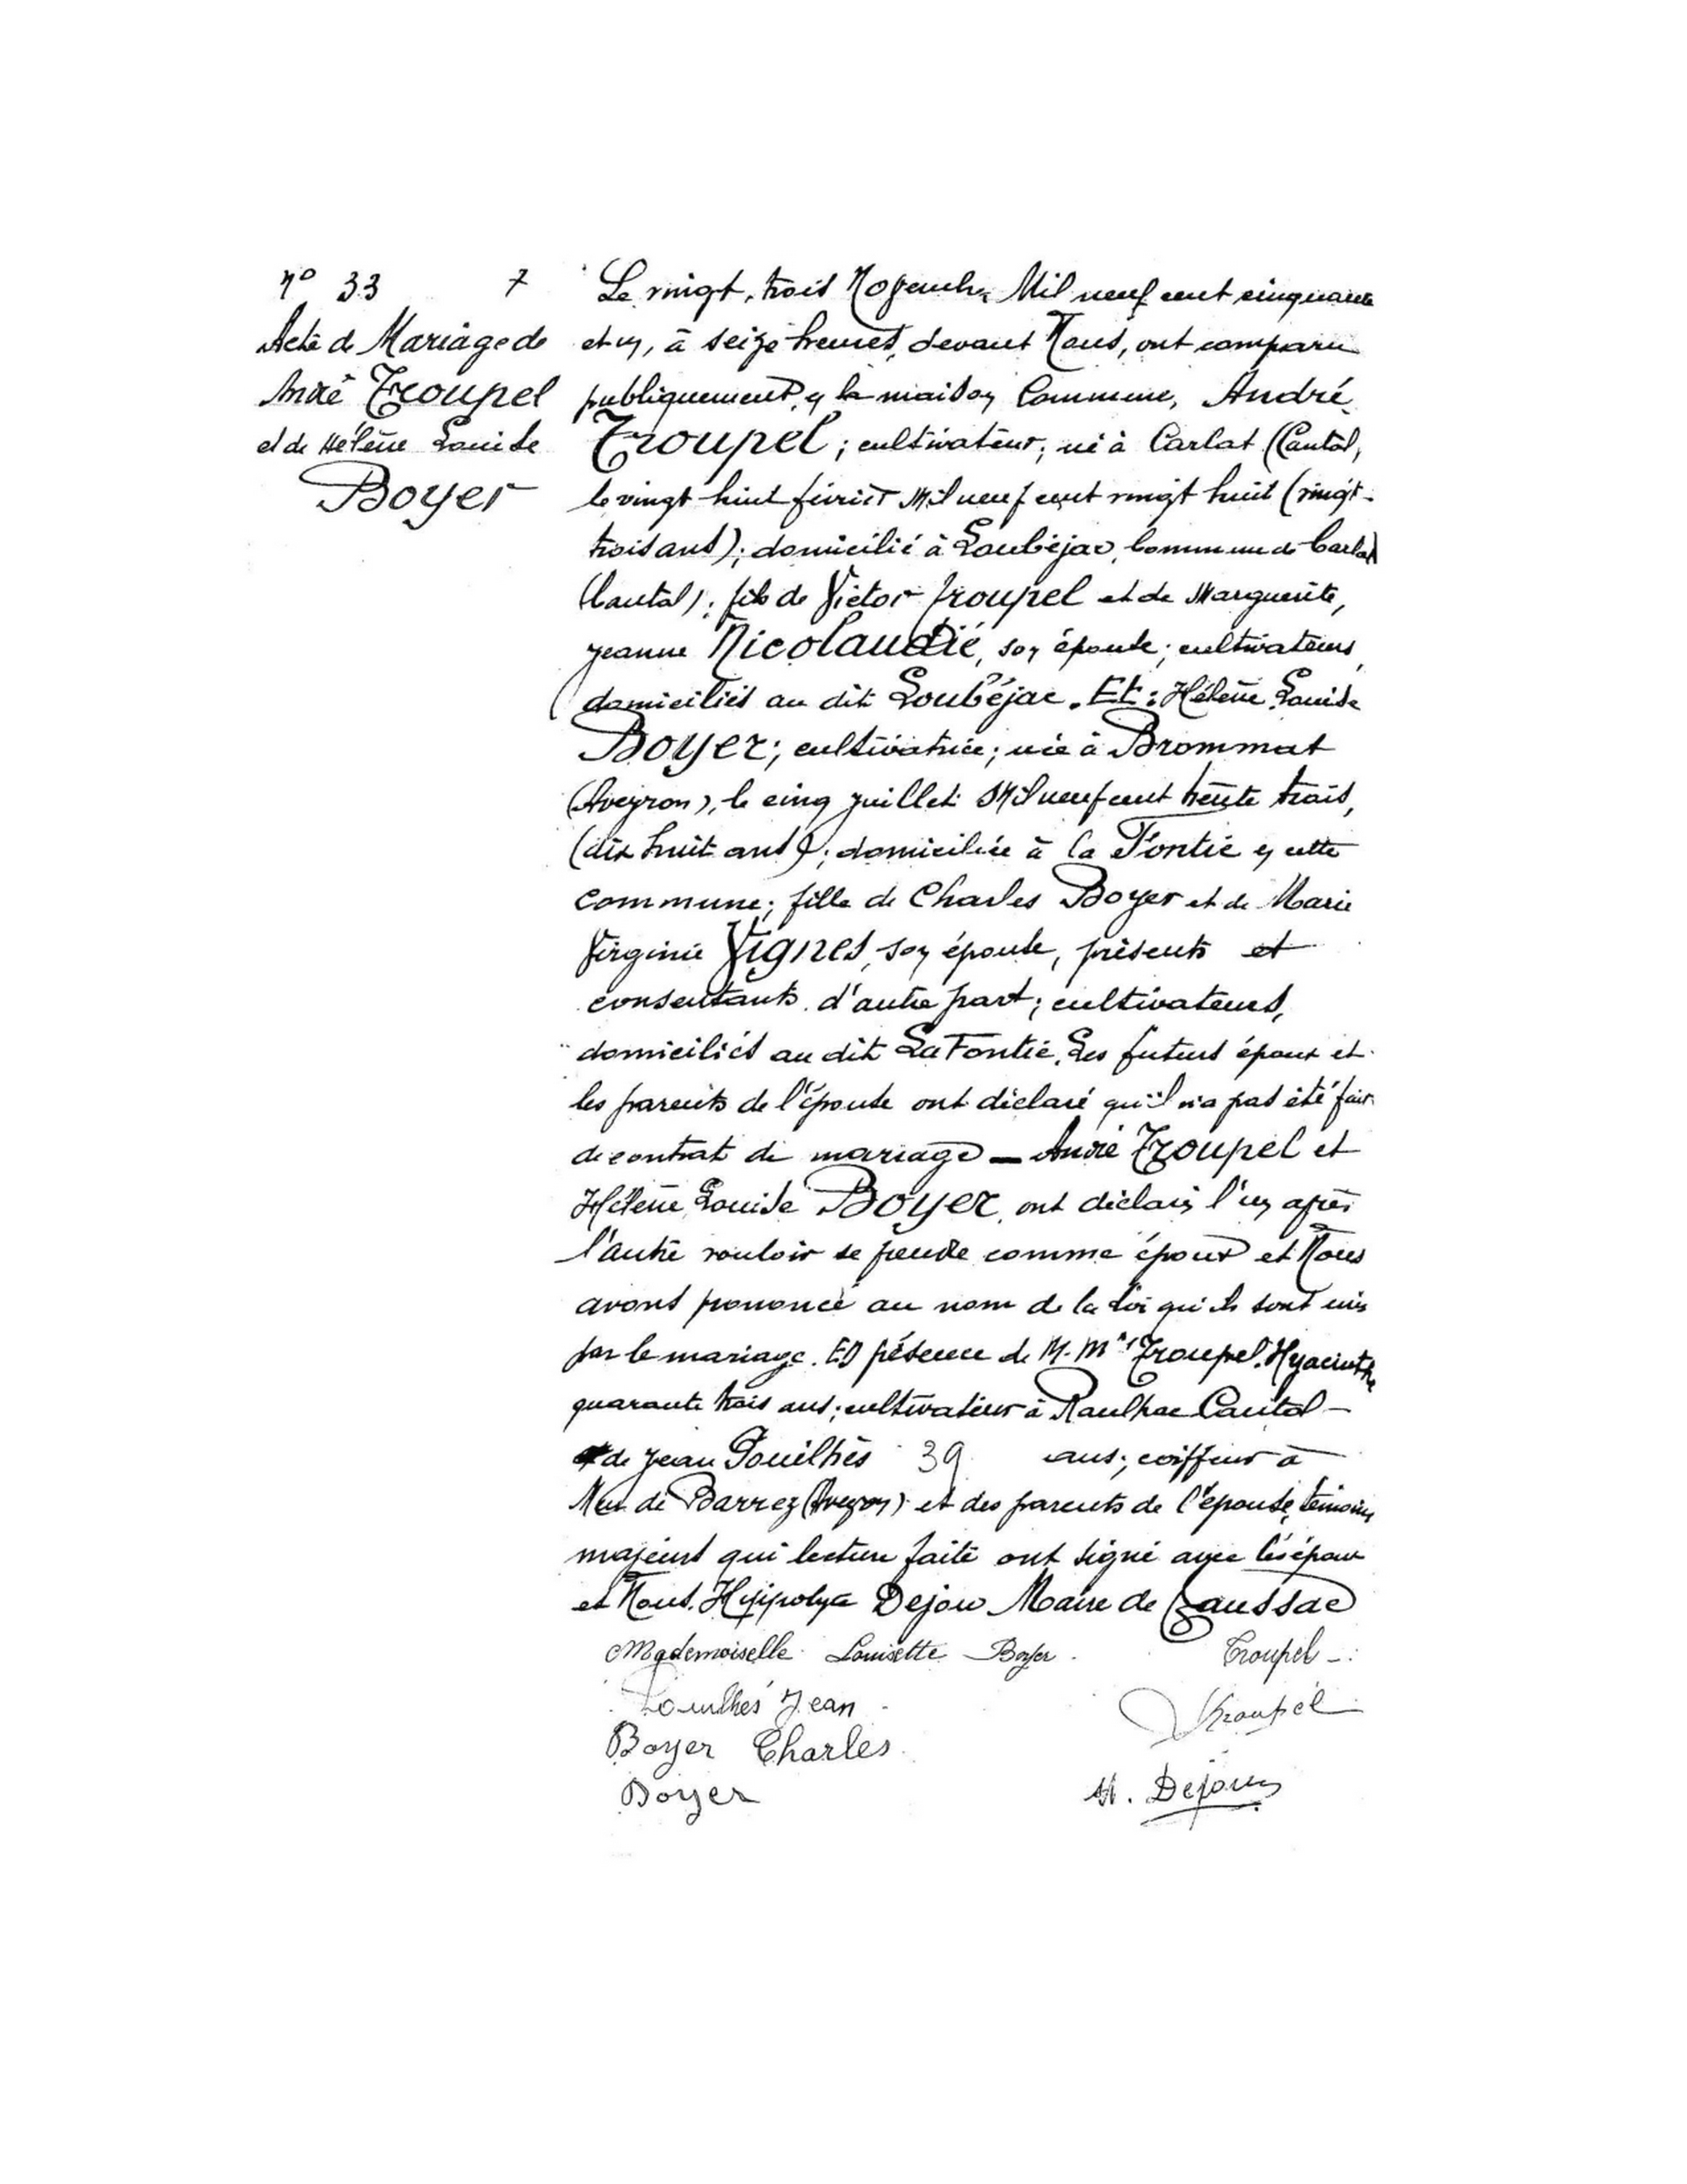 N° 33 7
Acte de Mariage de
André Troupel
et de Hélène Louise
Boyer
Le vingt-trois Novembre Mil neuf cent cinquante
et un, à seize heures, devant Nous, ont comparu
publiquement en la maison Commune, André
Troupel ; cultivateur ; né à Carlat (Cantal,
le vingt huit février Mil neuf cent vingt huit (vingt-
trois ans) ; domicilié à Loubéjac, Commune de Carlat
(Cantal) ; fils de Victor Troupel et de Marguerite,
Jeanne Nicolaudié, son épouse ; cultivateurs,
domiciliés au dit Loubéjac. Et : Hélène Louise
Boyer ; cultivatrice ; née à Brommat
(Aveyron), le cinq juillet Mil neuf cent trente trois,
(dix huit ans) ; domiciliée à La Fontie en cette
Commune ; fille de Charles Boyer et de Marie
Virginie Vignes, son épouse, présents et
consentants d'autre part ; cultivateurs,
domiciliés au dit La Fontie. Les futurs époux et
les parents de l'épouse ont déclaré qu'il n'a pas été fait
de contrat de mariage — André Troupel et
Hélène Louise Boyer, ont déclaré l'un après
l'autre vouloir se prendre comme époux et Nous
avons prononcé au nom de la Loi qu'ils sont unis
par le mariage. En présence de M. Mrs Troupel Hyacinthe
quarante trois ans ; cultivateur à Raulhac Cantal —
de Jean Pouilhès 39 ans ; coiffeur à
Mur de Barrez (Aveyron) et des parents de l'épouse, témoins
majeurs qui lecture faite ont signé avec les époux
et Nous. Hippolyte Dejou Maire de Taussac
Mademoiselle Louisette Boyer Troupel
Pouilhès Jean Troupel
Boyer Charles
Boyer H. Dejou